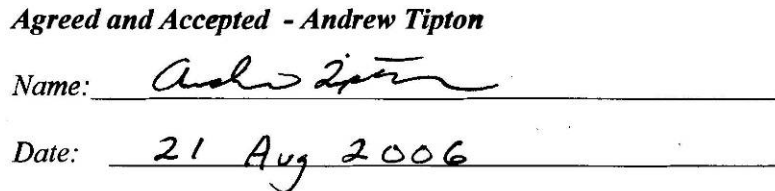 Agreed and Accepted - Andrew Tipton
Name: Andrew Tipton
Date: 21 Aug 2006